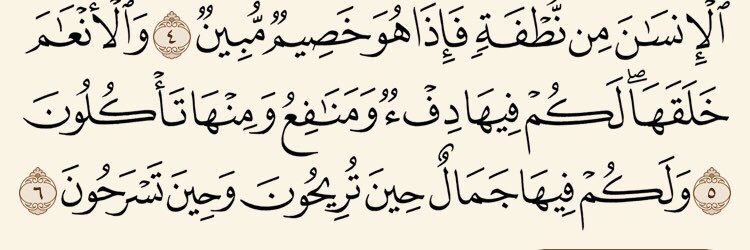 ٱلْإِنسَٰنَ مِن نُّطْفَةٍ فَإِذَا هُوَ خَصِيمٌ مُّبِينٌ ٤ وَٱلْأَنْعَٰمَ
خَلَقَهَا ۖ لَكُمْ فِيهَا دِفْءٌ وَمَنَٰفِعُ وَمِنْهَا تَأْكُلُونَ
٥ وَلَكُمْ فِيهَا جَمَالٌ حِينَ تُرِيحُونَ وَحِينَ تَسْرَحُونَ ٦